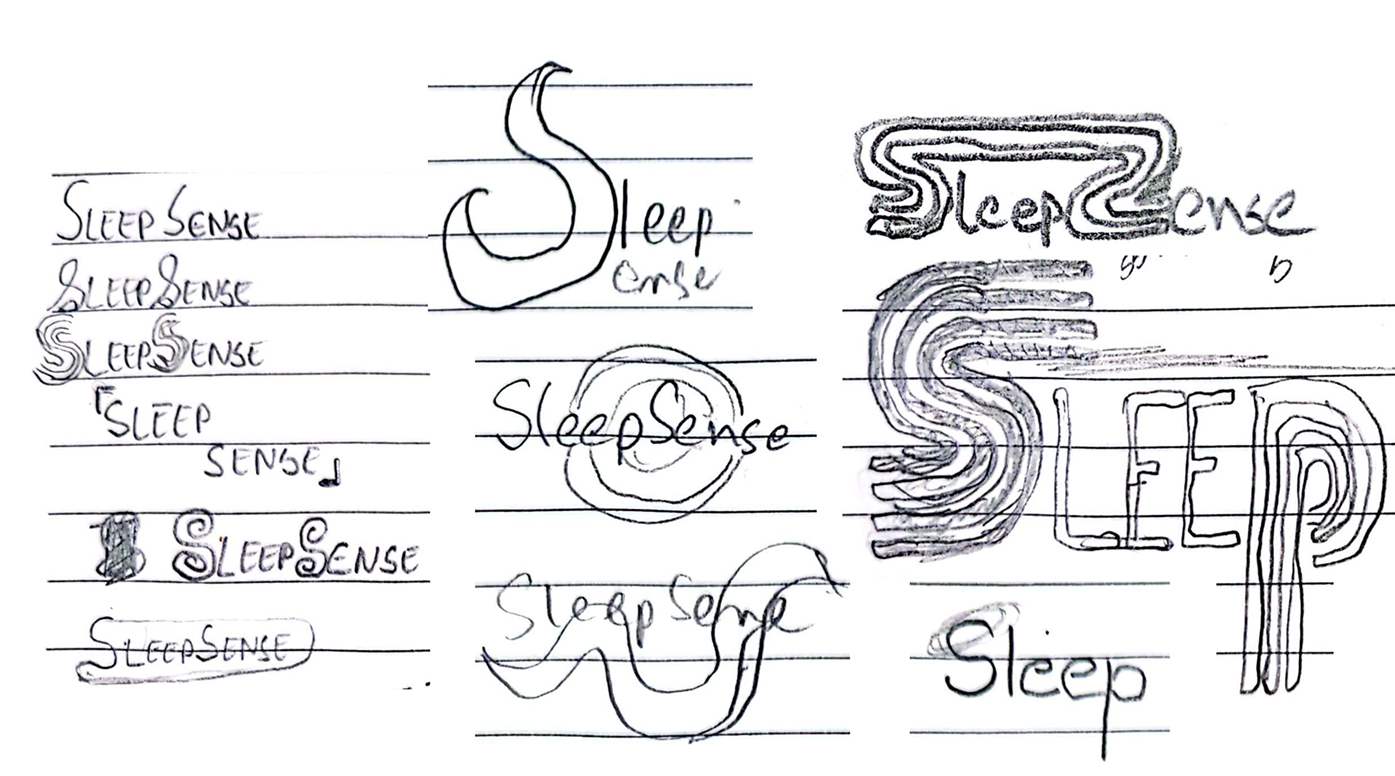 SLEEP SENSE
SLEEPSENSE
SLEEPSENSE
SLEEP
SENSE
SLEEPSENSE
SLEEPSENSE
Sleep
ense
SleepSense
Sleep Sense
SleepSense
SLEEP
Sleep